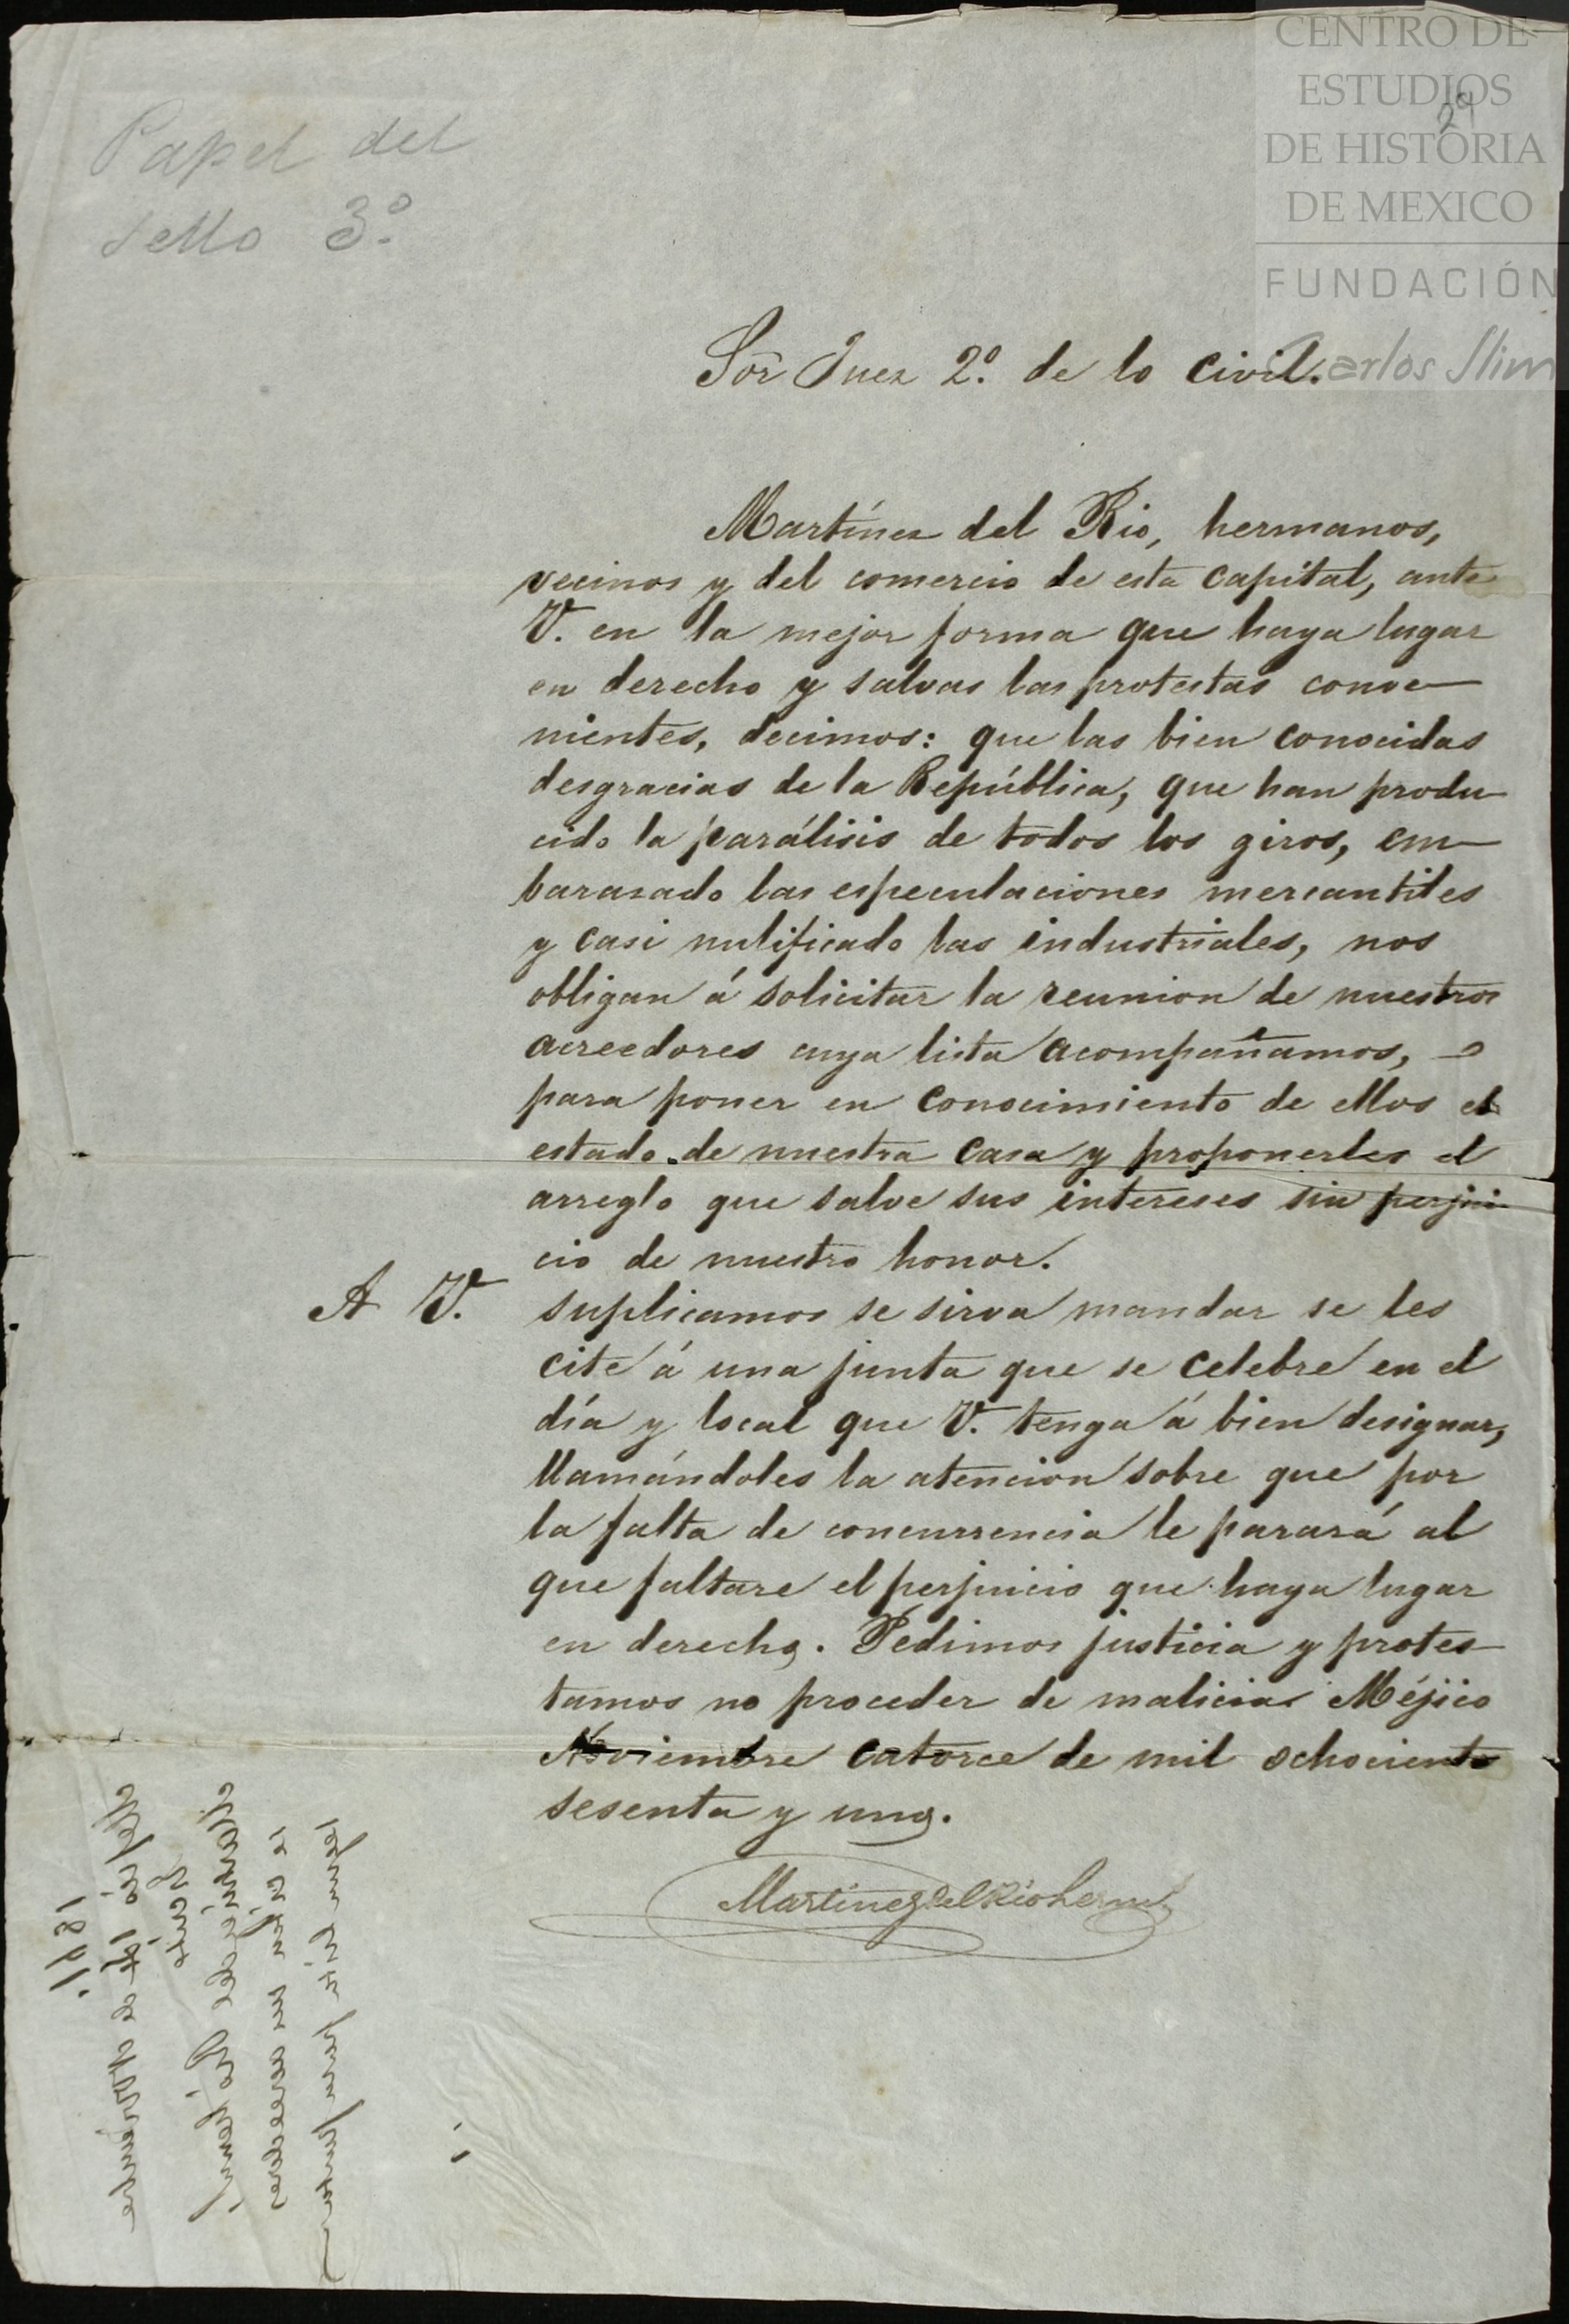 CENTRO DE
ESTUDIOS
DE HISTORIA
DE MEXICO
FUNDACIÓN
Carlos Slim
29
Papel del
sello 3º
Sor Juez 2º. de lo Civil.
Martínez del Rio, hermanos,
vecinos y del comercio de esta Capital, ante
V. en la mejor forma que haya lugar
en derecho y salvas las protestas conve
nientes, decimos: que las bien conocidas
desgracias de la República, que han produ
cido la parálisis de todos los giros, em
barazado las especulaciones mercantiles
y casi nulificado las industriales, nos
obligan á solicitar la reunion de nuestros
acreedores cuya lista acompañamos,
para poner en conocimiento de ellos el
estado de nuestra casa y proponerles el
arreglo que salve sus intereses sin perjui
cio de nuestro honor.
A V. suplicamos se sirva mandar se les
cite á una junta que se celebre en el
día y local que V. tenga á bien designar,
llamándoles la atencion sobre que por
la falta de concurrencia le parará al
que faltare el perjuicio que haya lugar
en derecho. Pedimos justicia y protes
tamos no proceder de malicia. Méjico
Noviembre catorce de mil ochocientos
sesenta y uno.
Martinez del Rio herms
1861